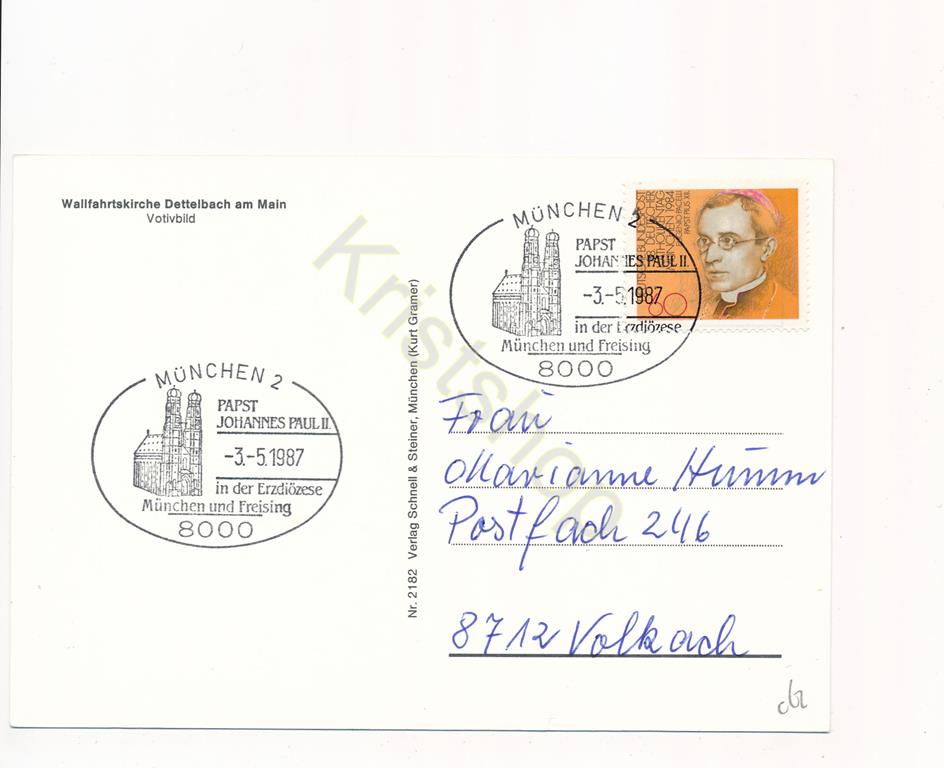 Wallfahrtskirche Dettelbach am Main
Votivbild
MÜNCHEN 2
PAPST
JOHANNES PAUL II.
-3.-5.1987
in der Erzdiözese
München und Freising
8000
Nr. 2182 Verlag Schnell & Steiner, München (Kurt Gramer)
MÜNCHEN 2
PAPST
JOHANNES PAUL II.
-3.-5.1987
in der Erzdiözese
München und Freising
8000
DEUTSCHE BUNDESPOST
88. DEUTSCHER
KATHOLIKENTAG
MÜNCHEN 1984
EUGENIO PACELLI
PAPST PIUS XII.
60
Frau
Marianne Humm
Postfach 246
8712 Volkach
Kristshop